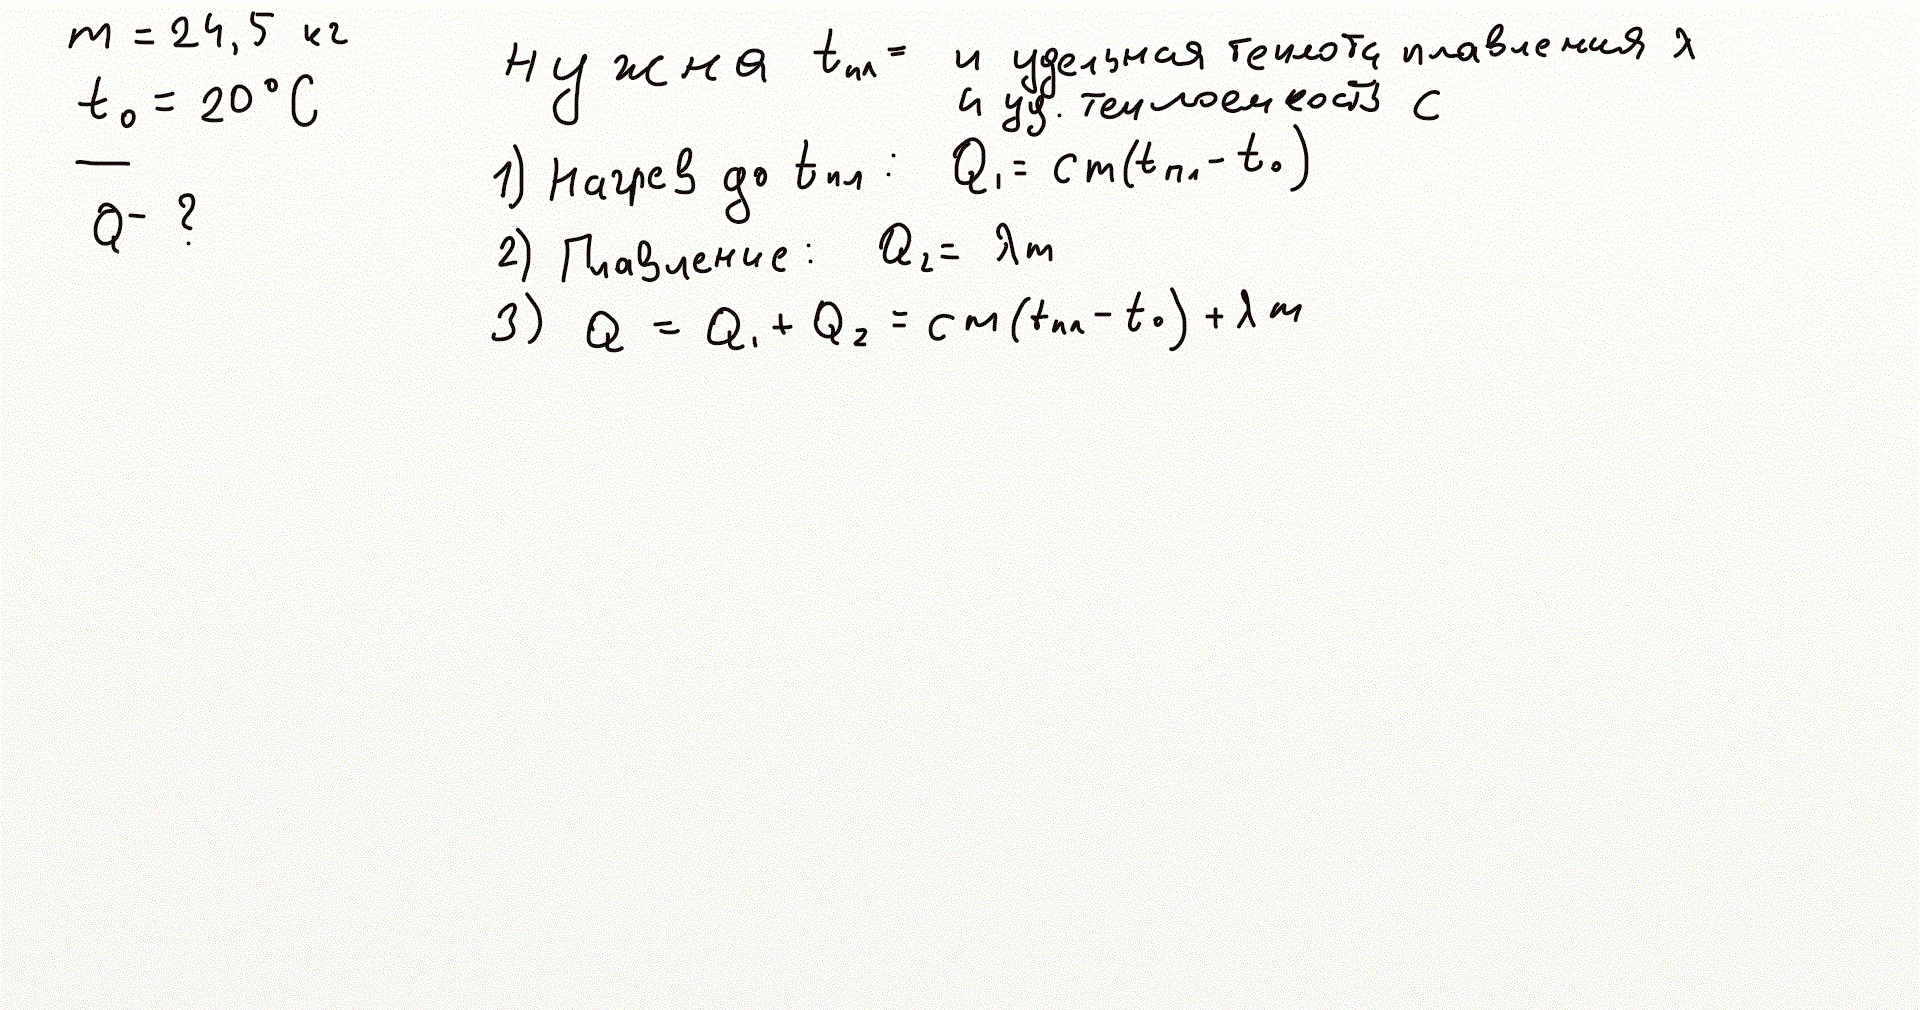 m = 24,5 кг
t₀ = 20°C
Q - ?
нужна tпл = и удельная теплота плавления λ
и уд. теплоемкость c
1) Нагрев до tпл : Q₁ = cm(tпл - t₀)
2) Плавление : Q₂ = λm
3) Q = Q₁ + Q₂ = cm(tпл - t₀) + λm